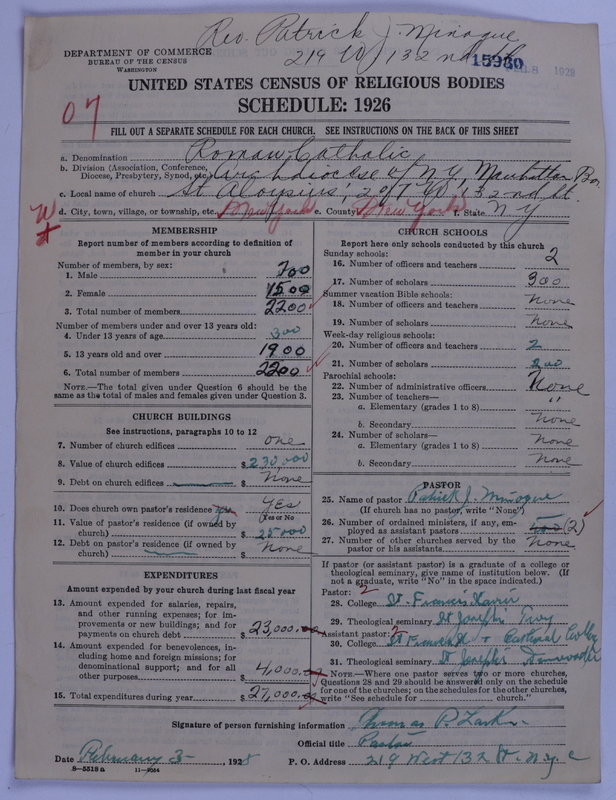 Rev. Patrick J. Minogue
219 W 132nd St
DEPARTMENT OF COMMERCE
BUREAU OF THE CENSUS
WASHINGTON
15980
FEB 8 1928
UNITED STATES CENSUS OF RELIGIOUS BODIES
SCHEDULE: 1926
07
FILL OUT A SEPARATE SCHEDULE FOR EACH CHURCH. SEE INSTRUCTIONS ON THE BACK OF THIS SHEET
a. Denomination Roman Catholic
b. Division (Association, Conference,
Diocese, Presbytery, Synod, etc.) Archdiocese of N.Y. Manhattan Bor
c. Local name of church St Aloysius', 2 W 132nd St.
d. City, town, village, or township, etc. New York e. County New York f. State N Y
MEMBERSHIP
Report number of members according to definition of
member in your church
Number of members, by sex:
1. Male 700
2. Female 1500
3. Total number of members 2200
Number of members under and over 13 years old:
4. Under 13 years of age 300
5. 13 years old and over 1900
6. Total number of members 2200
NOTE.—The total given under Question 6 should be
same as the total of males and females given under Question 3.
CHURCH BUILDINGS
See instructions, paragraphs 10 to 12
7. Number of church edifices one
8. Value of church edifices $ 230,000
9. Debt on church edifices $ None
10. Does church own pastor's residence yes
(Yes or No)
11. Value of pastor's residence (if owned by
church) $ 25000
12. Debt on pastor's residence (if owned by
church) $ None
EXPENDITURES
Amount expended by your church during last fiscal year
13. Amount expended for salaries, repairs,
and other running expenses; for im-
provements or new buildings; and for
payments on church debt $ 23,000.00
14. Amount expended for benevolences, in-
cluding home and foreign missions; for
denominational support; and for all
other purposes $ 4,000.00
15. Total expenditures during year $ 27,000.00
CHURCH SCHOOLS
Report here only schools conducted by this church
Sunday schools:
16. Number of officers and teachers 2
17. Number of scholars 300
Summer vacation Bible schools:
18. Number of officers and teachers None
19. Number of scholars None
Week-day religious schools:
20. Number of officers and teachers 2
21. Number of scholars 200
Parochial schools:
22. Number of administrative officers None
23. Number of teachers—
a. Elementary (grades 1 to 8) "
b. Secondary None
24. Number of scholars—
a. Elementary (grades 1 to 8) None
b. Secondary None
PASTOR
25. Name of pastor Patrick J. Minogue
(If church has no pastor, write "None")
26. Number of ordained ministers, if any, em-
ployed as assistant pastors (2)
27. Number of other churches served by the
pastor or his assistants None
If pastor (or assistant pastor) is a graduate of a college or
theological seminary, give name of institution below. (If
not a graduate, write "No" in the space indicated.)
Pastor: 2
28. College St. Francis Xavier
29. Theological seminary St Josephs Troy
Assistant pastor: 2
30. College St Francis X + Cathedral College
31. Theological seminary St Josephs Dunwoodie
NOTE.—Where one pastor serves two or more churches,
Questions 28 and 29 should be answered only on the schedule
for one of the churches; on the schedules for the other churches,
write "See schedule for church."
Signature of person furnishing information Thomas P. Larkin
Official title Pastor
Date February 3 , 1928 P. O. Address 219 West 132 St. N.Y. C
8—5518 a 11—9024